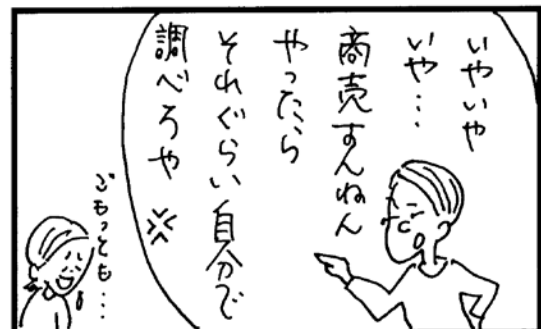 いやいや
いや…
商売すんねん
やったら
それぐらい自分で
調べろや
ごもっとも…